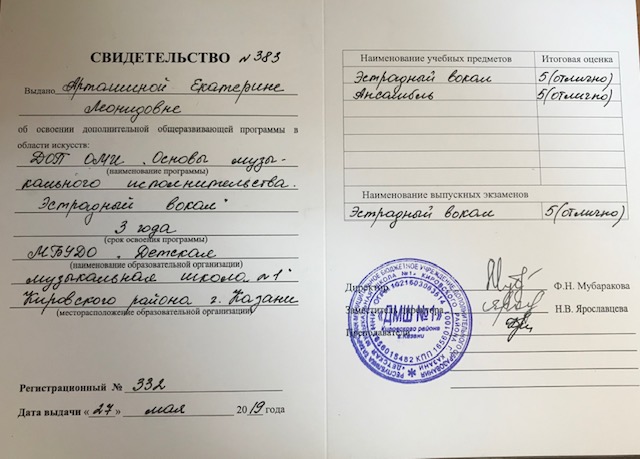 СВИДЕТЕЛЬСТВО № 383
Выдано Арташиной Екатерине
Леонидовне
об освоении дополнительной общеразвивающей программы в
области искусств:
ДОП ОМИ „Основы музы-
(наименование программы)
кального исполнительства.
Эстрадный вокал"
3 года
(срок освоения программы)
МБУДО „Детская
(наименование образовательной организации)
музыкальная школа №1"
Кировского района г. Казани
(месторасположение образовательной организации)
Регистрационный № 332
Дата выдачи «27» мая 2019 года
Наименование учебных предметов Итоговая оценка
Эстрадный вокал 5 (отлично)
Ансамбль 5 (отлично)
Наименование выпускных экзаменов
Эстрадный вокал 5 (отлично)
Директор Ф.Н. Мубаракова
Заместитель директора Н.В. Ярославцева
Преподаватель
"ДМШ №1"
Кировского района
г. Казани